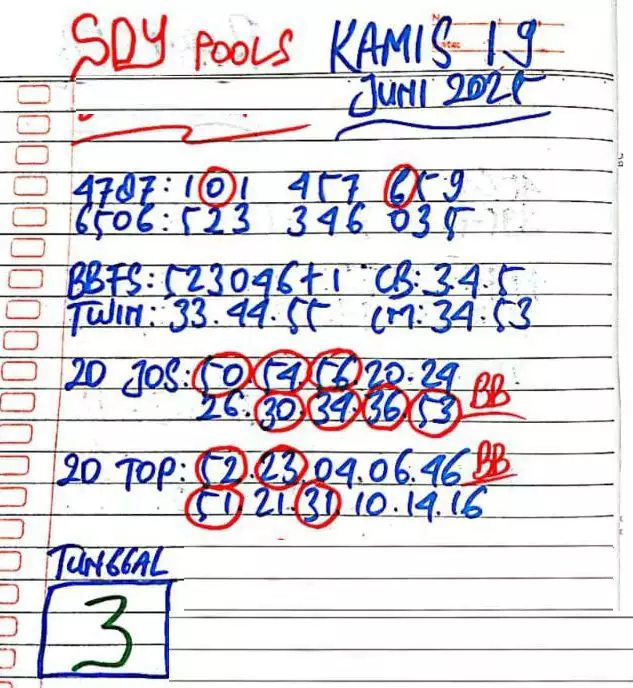 SDY POOLS KAMIS 19
JUNI 2025
4787: 101 457 659
6506: 523 346 035
BBFS: 523046+1 CB: 3.4.5
TWIN: 33.44.55 CM: 34.53
2D JOS: 50.54.56.20.24
26.30.34.36.53 BB
2D TOP: 52.23.04.06.46 BB
51.21.31.10.14.16
TUNGGAL
3